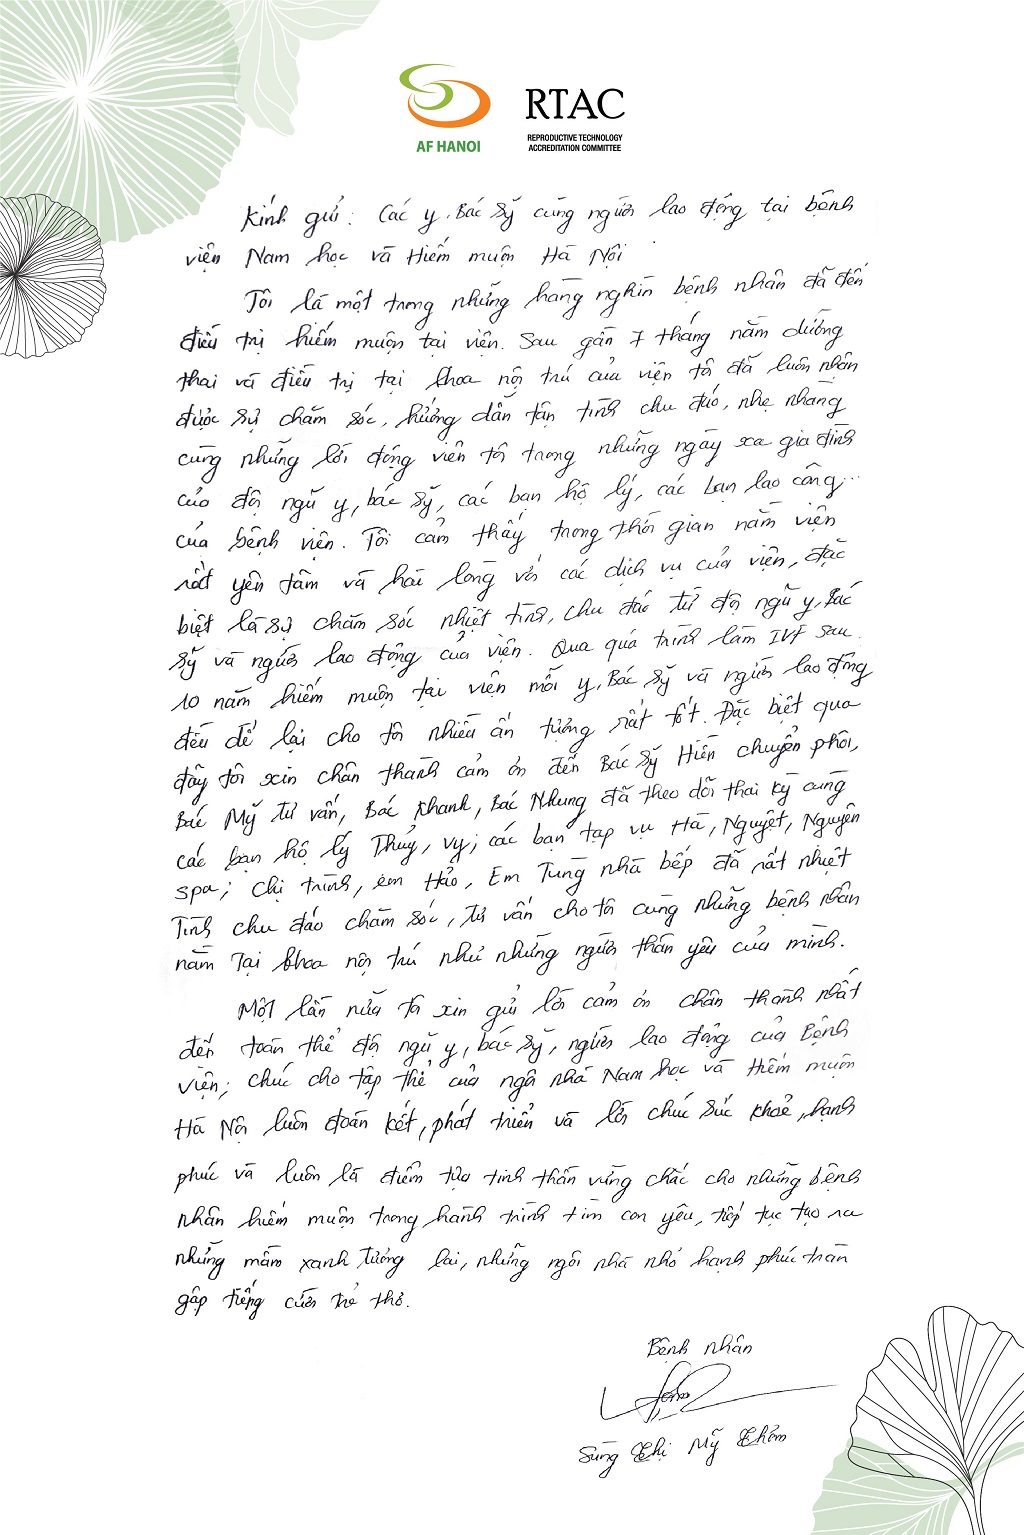 AF HANOI
RTAC
REPRODUCTIVE TECHNOLOGY
ACCREDITATION COMMITTEE
Kính gửi: Các y, Bác Sỹ cùng người lao động tại bệnh
viện Nam học và Hiếm muộn Hà Nội
Tôi là một trong những hàng nghìn bệnh nhân đã đến
điều trị hiếm muộn tại viện. Sau gần 7 tháng nằm dưỡng
thai và điều trị tại khoa nội trú của viện tôi đã luôn nhận
được sự chăm sóc, hướng dẫn tận tình chu đáo, nhẹ nhàng
cùng những lời động viên tôi trong những ngày xa gia đình
của đội ngũ y, bác sỹ, các bạn hộ lý, các bạn lao công...
của bệnh viện. Tôi cảm thấy trong thời gian nằm viện
rất yên tâm và hài lòng với các dịch vụ của viện, đặc
biệt là sự chăm sóc nhiệt tình, chu đáo từ đội ngũ y, Bác
sỹ và người lao động của viện. Qua quá trình làm IVF sau
10 năm hiếm muộn tại viện mỗi y, Bác sỹ và người lao động
đều để lại cho tôi nhiều ấn tượng rất tốt. Đặc biệt qua
đây tôi xin chân thành cảm ơn đến Bác sỹ Hiền chuyển phôi,
Bác Mỹ tư vấn, Bác Khanh, Bác Nhung đã theo dõi thai kỳ cùng
các bạn hộ lý Thủy, Vy; các bạn tạp vụ Hà, Nguyệt, Nguyên
spa; chị trình, em Hảo, Em Tùng nhà bếp đã rất nhiệt
Tình chu đáo chăm sóc, tư vấn cho tôi cùng những bệnh nhân
nằm Tại khoa nội trú như những người thân yêu của mình.
Một lần nữa tôi xin gửi lời cảm ơn chân thành nhất
đến toàn thể đội ngũ y, bác sỹ, người lao động của Bệnh
viện; chúc cho tập thể của ngôi nhà Nam học và Hiếm muộn
Hà Nội luôn đoàn kết, phát triển và lời chúc sức khoẻ, hạnh
phúc và luôn là điểm tựa tinh thần vững chắc cho những bệnh
nhân hiếm muộn trong hành trình tìm con yêu, tiếp tục tạo ra
những mầm xanh tương lai, những ngôi nhà nhỏ hạnh phúc tràn
gập tiếng cười trẻ thơ.
Bệnh nhân
Sùng Thị Mỹ Thơm